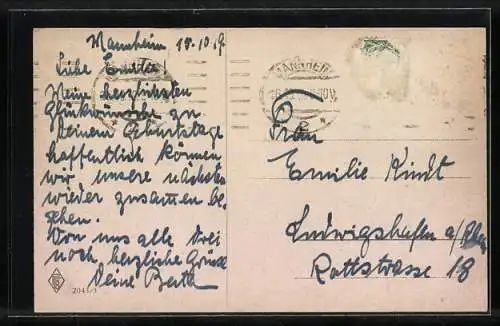 Mannheim 18.10.19.
Liebe Emilie
Meine herzlichsten
Glückwünsche zu
deinem Geburtstage
hoffentlich können
wir unsere nächsten
wieder zusammen be
gehen.
Von uns alle drei
noch herzliche Grüsse
Deine Berta
2045/3
MANNHEIM
Frau
Emilie Kindt
Ludwigshafen a/Rhein
Rottstrasse 18